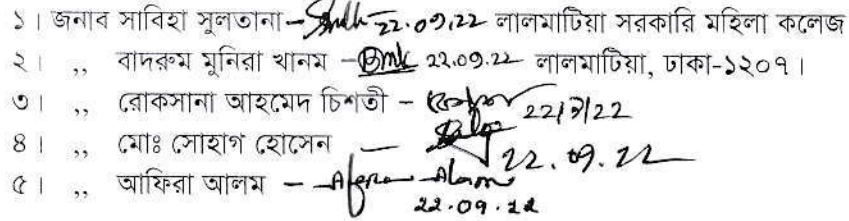 ১। জনাব সাবিহা সুলতানা – 22.09.22 লালমাটিয়া সরকারি মহিলা কলেজ
২। ,, বাদরুম মুনিরা খানম – 22.09.22 লালমাটিয়া, ঢাকা-১২০৭।
৩। ,, রোকসানা আহমেদ চিশতী – 22/9/22
৪। ,, মোঃ সোহাগ হোসেন – 22.09.22
৫। ,, আফিরা আলম – Afera Alam
22.09.22